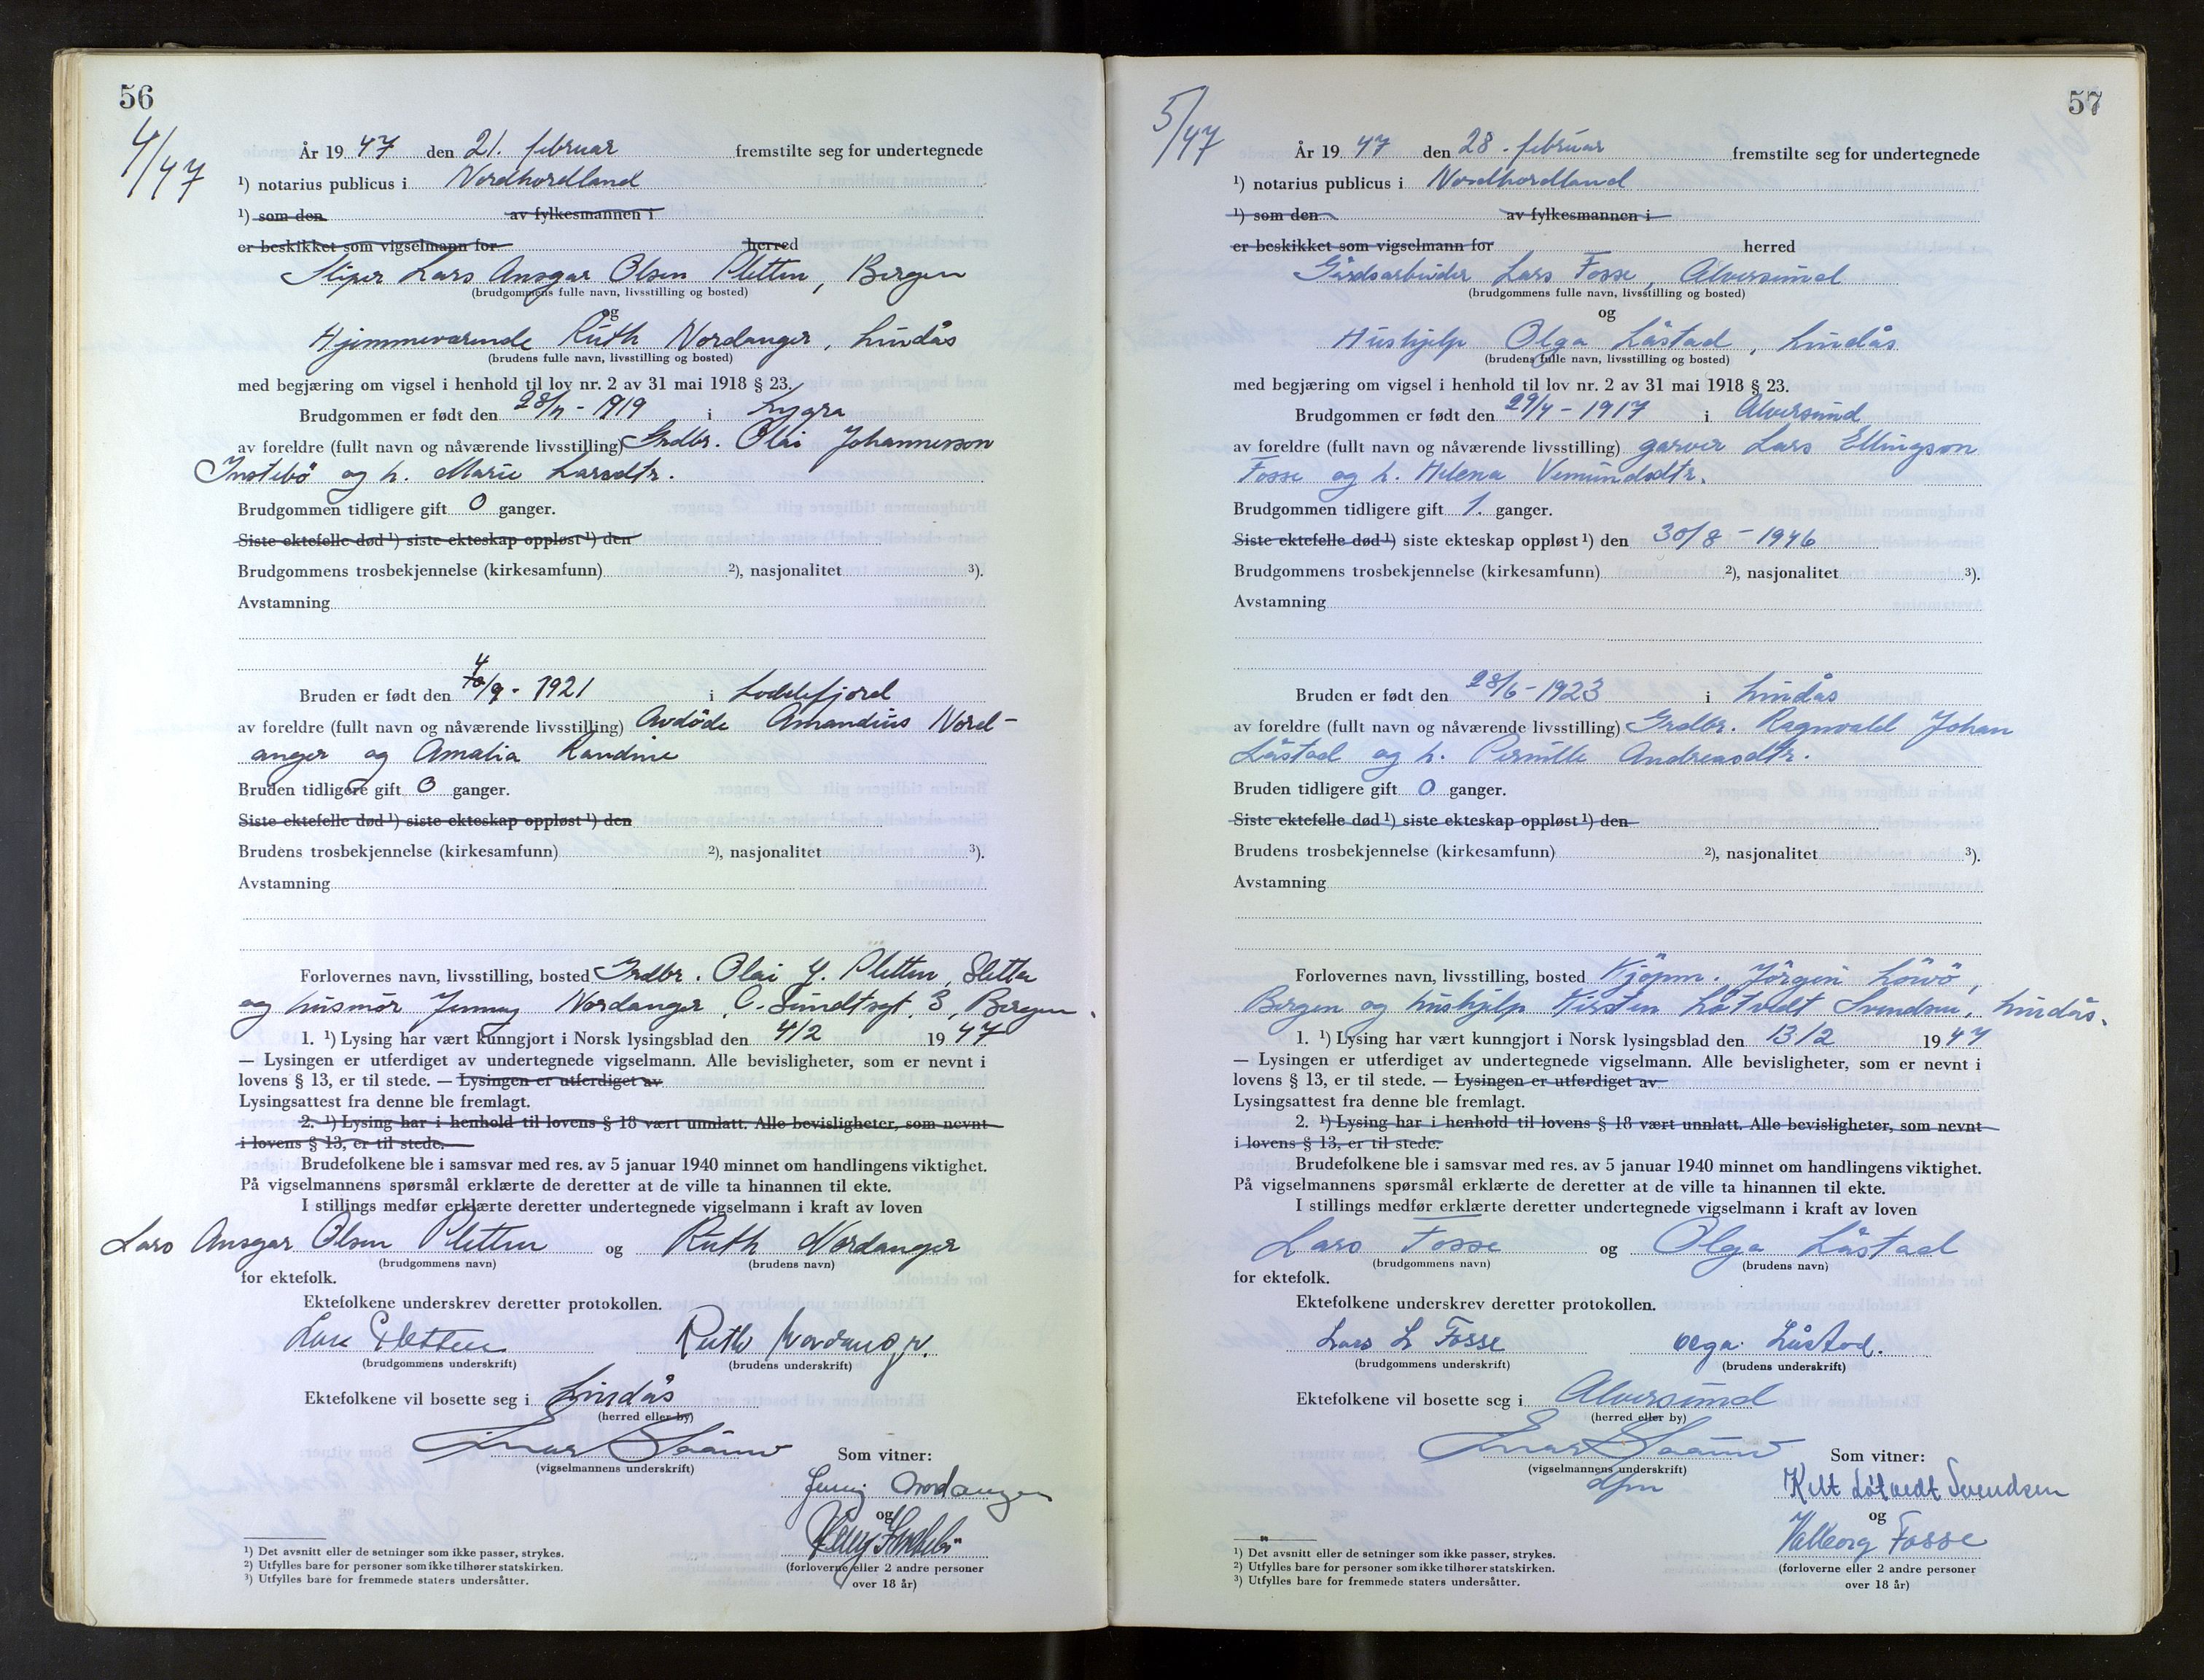 56
4/47
År 1947 den 21. februar fremstilte seg for undertegnede
¹) notarius publicus i Nordhordland
¹) som den av fylkesmannen i
er beskikket som vigselmann for herred
Sliper Lars Ansgar Olsen Pletten, Bergen
(brudgommens fulle navn, livsstilling og bosted)
og
Hjemmeværende Ruth Nordanger, Lindås
(brudens fulle navn, livsstilling og bosted)
med begjæring om vigsel i henhold til lov nr. 2 av 31 mai 1918 § 23.
Brudgommen er født den 28/11 - 1919 i Lygra
av foreldre (fullt navn og nåværende livsstilling) Grdbr. Olai Johannesson
Instebö og h. Marie Larsdtr.
Brudgommen tidligere gift 0 ganger.
Siste ektefelle død ¹) siste ekteskap oppløst ¹) den
Brudgommens trosbekjennelse (kirkesamfunn) ²), nasjonalitet ³).
Avstamning
Bruden er født den 4/9 - 1921 i Loddefjord
av foreldre (fullt navn og nåværende livsstilling) Avdöde Amandus Nord-
anger og Amalia Randine
Bruden tidligere gift 0 ganger.
Siste ektefelle død ¹) siste ekteskap oppløst ¹) den
Brudens trosbekjennelse (kirkesamfunn) ²), nasjonalitet ³).
Avstamning
Forlovernes navn, livsstilling, bosted Grdbr. Olai J. Pletten, Sletta
og husmor Jenny Nordanger, C. Sundtsgt. 3, Bergen.
1. ¹) Lysing har vært kunngjort i Norsk lysingsblad den 4/2 1947
— Lysingen er utferdiget av undertegnede vigselmann. Alle bevisligheter, som er nevnt i
lovens § 13, er til stede. — Lysingen er utferdiget av
Lysingsattest fra denne ble fremlagt.
2. ¹) Lysing har i henhold til lovens § 18 vært unnlatt. Alle bevisligheter, som nevnt
i lovens § 13, er til stede.
Brudefolkene ble i samsvar med res. av 5 januar 1940 minnet om handlingens viktighet.
På vigselmannens spørsmål erklærte de deretter at de ville ta hinannen til ekte.
I stillings medfør erklærte deretter undertegnede vigselmann i kraft av loven
Lars Ansgar Olsen Pletten og Ruth Nordanger
(brudgommens navn) (brudens navn)
for ektefolk.
Ektefolkene underskrev deretter protokollen.
Lars Pletten Ruth Nordanger.
(brudgommens underskrift) (brudens underskrift)
Ektefolkene vil bosette seg i Lindås
(herred eller by)
(vigselmannens underskrift)
Som vitner:
Jenny Nordanger
og
(forloverne eller 2 andre personer
over 18 år)
¹) Det avsnitt eller de setninger som ikke passer, strykes.
²) Utfylles bare for personer som ikke tilhører statskirken.
³) Utfylles bare for fremmede staters undersåtter.
57
5/47
År 1947 den 28. februar fremstilte seg for undertegnede
¹) notarius publicus i Nordhordland
¹) som den av fylkesmannen i
er beskikket som vigselmann for herred
Gårdsarbeider Lars Fosse, Alversund
(brudgommens fulle navn, livsstilling og bosted)
og
Hushjelp Olga Låstad, Lindås
(brudens fulle navn, livsstilling og bosted)
med begjæring om vigsel i henhold til lov nr. 2 av 31 mai 1918 § 23.
Brudgommen er født den 29/4 - 1917 i Alversund
av foreldre (fullt navn og nåværende livsstilling) garver Lars Ellingson
Fosse og h. Helena Vemundsdtr.
Brudgommen tidligere gift 1. ganger.
Siste ektefelle død ¹) siste ekteskap oppløst ¹) den 30/8 - 1946
Brudgommens trosbekjennelse (kirkesamfunn) ²), nasjonalitet ³).
Avstamning
Bruden er født den 28/6 - 1923 i Lindås
av foreldre (fullt navn og nåværende livsstilling) Grdbr. Ragnvald Johan
Låstad og h. Pernille Andreasdtr.
Bruden tidligere gift 0 ganger.
Siste ektefelle død ¹) siste ekteskap oppløst ¹) den
Brudens trosbekjennelse (kirkesamfunn) ²), nasjonalitet ³).
Avstamning
Forlovernes navn, livsstilling, bosted Kjöpm. Jörgen Löwö,
Bergen og hushjelp Kirsten Løtvedt Svendsen, Lindås.
1. ¹) Lysing har vært kunngjort i Norsk lysingsblad den 13/2 1947
— Lysingen er utferdiget av undertegnede vigselmann. Alle bevisligheter, som er nevnt i
lovens § 13, er til stede. — Lysingen er utferdiget av
Lysingsattest fra denne ble fremlagt.
2. ¹) Lysing har i henhold til lovens § 18 vært unnlatt. Alle bevisligheter, som nevnt
i lovens § 13, er til stede.
Brudefolkene ble i samsvar med res. av 5 januar 1940 minnet om handlingens viktighet.
På vigselmannens spørsmål erklærte de deretter at de ville ta hinannen til ekte.
I stillings medfør erklærte deretter undertegnede vigselmann i kraft av loven
Lars Fosse og Olga Låstad
(brudgommens navn) (brudens navn)
for ektefolk.
Ektefolkene underskrev deretter protokollen.
Lars L Fosse Olga Låstad.
(brudgommens underskrift) (brudens underskrift)
Ektefolkene vil bosette seg i Alversund
(herred eller by)
(vigselmannens underskrift)
dfm
Som vitner:
Kirt Løtvedt Svendsen
og
Valborg Fosse
(forloverne eller 2 andre personer
over 18 år)
¹) Det avsnitt eller de setninger som ikke passer, strykes.
²) Utfylles bare for personer som ikke tilhører statskirken.
³) Utfylles bare for fremmede staters undersåtter.